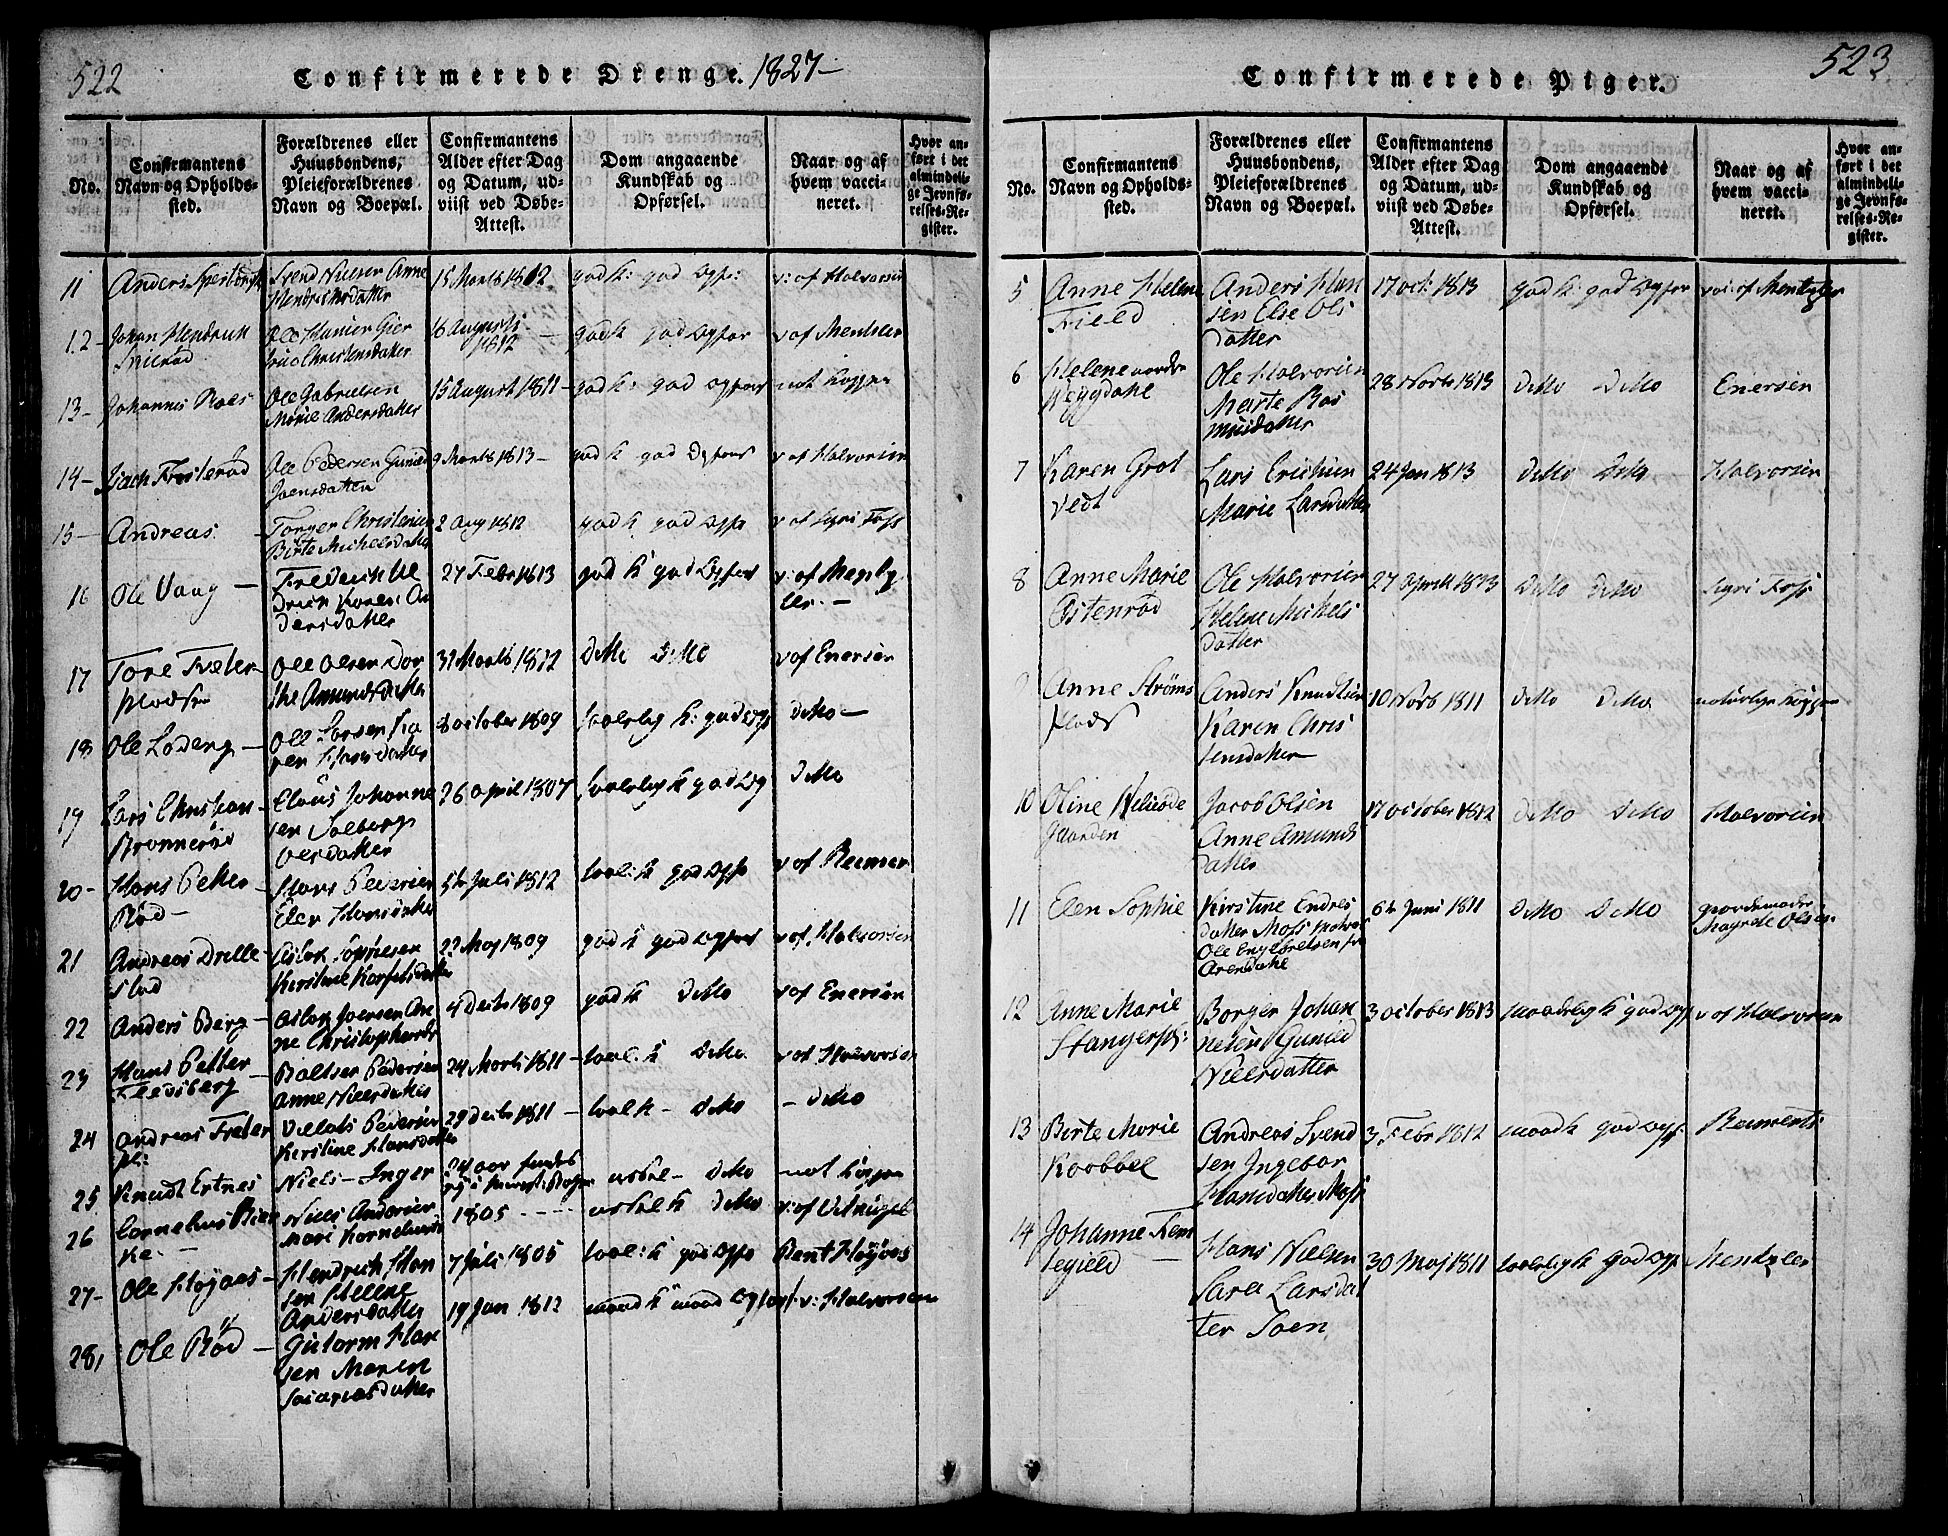 522
Confirmerede Drenge. 1827-
No.
Confirmantens
Navn og Opholds-
sted.
Forældrenes eller
Huusbondens,
Pleieforældrenes
Navn og Boepæl.
Confirmantens
Alder efter Dag
og Datum, ud-
viist ved Døbe-
Attest.
Dom angaaende
Kundskab og
Opførsel.
Naar og af
hvem vacci-
neret.
Hvor an-
ført i det
almindeli-
ge Jevnfø-
relses-Re-
gister.
11 Anders
Svend Nielsen Anne
Hendrichsdatter
15 Marts 1812
god k: god Opf:
v: af Halvorsen
12- Johan Hendrich
Ole Hansen
Christensdatter
16 Augusti
1812
god k god Opfør
v af Mentzler
13- Johannis Roes
Ole Gabrielsen
Marie Andersdatter
15 August 1811-
god k: god opførs
nat kopper
14- Isach Frosterød
Ole Pedersen Gunild
Joensdatter
9 Marts 1813-
god k god Opførs
v af Halvorsen
15- Andreas
Torger Christensen
Birte Michelsdatter
2 Aug 1812
god k god Opfø
v af Sgri Foss
16 Ole Vang -
Frederich He
drich Karen An
dersdatter
27 Febr 1813
god k god Opførs
v: af Menzl
er. -
17 Tore Fæter
pladsen
Ole Olsen Dor
the Amundsdatter
31 Marts 1812
ditto ditto
v af Enersen
18 Ole Løderg -
Ole Larsen Ka
ren Hansdatter
8 october 1809
taalelig k: god opf
ditto -
19 Lars Christian
Brønnerød
Claus Johanne
sen Solberg
Olesdatter
26 april 1807
taalelig k god Op
ditto
20- Hans Petter
Rød -
Hans Pedersen
Elen Hansdatter
5te Juli 1812
taal: k god opfø
v af Reimer
21 Andreas Drille
stad
Aslak
Kirstine
22 Maj 1809
god k god opførs
v af Halvorsen
22 Anders Berg -
Aslak Joensen An
ne Christophersdr
4 Decbr 1809
god k ditto
v af Enersen
23 Hans Petter
Fledsberg -
Baltser Pedersen
Anne Nielsdatter
24 Marts 1811-
taal: k ditto
v af Halvorsen
24 Andreas Freter
pl:
Pedersen
Kirstine Hansdatter
29 Decbr 1811-
taal k - ditto
- ditto
25 Knudt Ertnes
Niels - Inger
24 aar findes
ey i
ustal - ditto
nat kopper
26 Cornelius Bier
ke -
Niels Andersen
Mari Kornelius
1805 - - -
ustal k ditto
v: af
27- Ole Høyaas -
Hendrich Han
sen Helene
Andersdatter
7 Juli 1805
taal: k god opfø
Bent Høyaas
28, Ole Rød -
Gutorm Han
sen Maren
Sacariasdatter
19 Jan 1812
maad k maad opførs
v: Halvorsen
523
Confirmerede Piger.
No.
Confirmantens
Navn og Opholds-
sted.
Forældrenes eller
Huusbondens,
Pleieforældrenes
Navn og Boepæl.
Confirmantens
Alder efter Dag
og Datum, ud-
viist ved Døbe-
Attest.
Dom angaaende
Kundskab og
Opførsel.
Naar og af
hvem vacci-
neret.
Hvor an-
ført i det
almindeli-
ge Jevnfø-
relses-Re-
gister.
5 Anne Helene
Field
Anders Han
sen Else Ols
datter
17 oct: 1813
god k: god Opfør
vac: af Mentzler
6 Helene nordre
Wegdahl
Ole Halvorsen
Marte Ras
musdatter
28 Novb 1813
ditto ditto
Enersen
7 Karen Grot
vedt
Lars Erichsen
Marie Larsdatter
24 Jan 1813
ditto ditto
Halvorsen
8 Anne Marie
Østenrød
Ole Halvorsen
Helene Mickels
datter
27 Aprill 1813
ditto ditto
Sgri Foss
9 Anne Strøms
plads
Anders Knudsen
Karen Chris
tensdatter
10 Novb 1811
ditto ditto
naturlige kopper
10 Oline
gaarden
Jacob Olsen
Anne Amunds
datter
17 october 1812
ditto ditto
Halvorsen
11 Elen Sophie
Kirstine Endres
datter Moss
Ole Engebretsen fra
Arendahl
6te Juni 1811
ditto ditto
Jordemoder
Magrete Olsen
12 Anne Marie
Stangerpl:
Borger Johan
nesen Gunild
Nielsdatter
3 october 1813
maadelig k god opf
v af Halvorsen
13 Birte Marie
Kaabbel
Andreas Svend
sen Ingebor
Hansdatter Moss
3 Febr 1812
maad k god opf:
Reinerts
14 Johanne Rem
tegield -
Hans Nielsen
Sara Larsdat
ter Soen
30 Maj 1811
taalelig k god opf
Mentzler